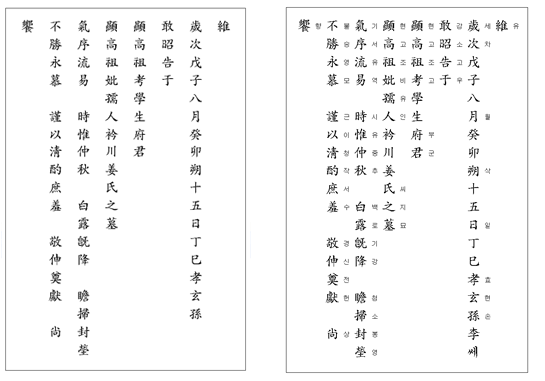 維
歲次戊子八月癸卯朔十五日丁巳孝玄孫
敢昭告于
顯高祖考學生府君
顯高祖妣孺人衿川姜氏之墓
氣序流易 時惟仲秋 白露旣降 瞻掃封塋
不勝永慕 謹以清酌庶羞 敬伸奠獻 尚
饗
維
유
歲次戊子八月癸卯朔十五日丁巳孝玄孫李
세차 월 삭 일 효현손
敢昭告于
감소고우
顯高祖考學生府君
현고조고 부군
顯高祖妣孺人衿川姜氏之墓
현고조비유인 씨지묘
氣序流易 時惟仲秋 白露旣降 瞻掃封塋
기서유역 시유중추 백로기강 첨소봉영
不勝永慕 謹以清酌庶羞 敬伸奠獻 尚
불승영모 근이청작서수 경신전헌 상
饗
향